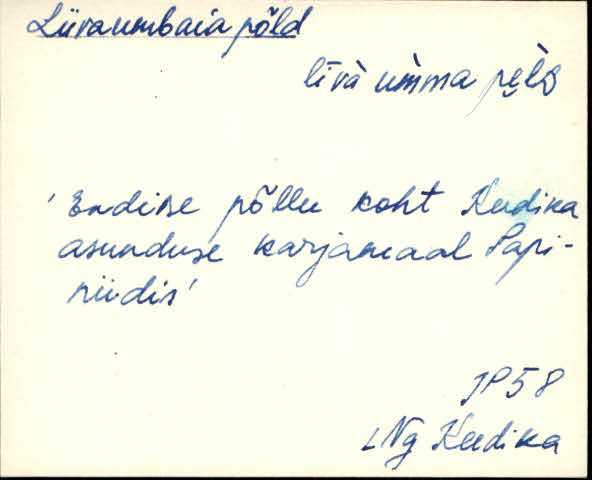 Liivaumbaia põld
'Endise põllu koht Keedika
asunduse karjamaal Papi-
niidis'
JP 58
LNg Keedika